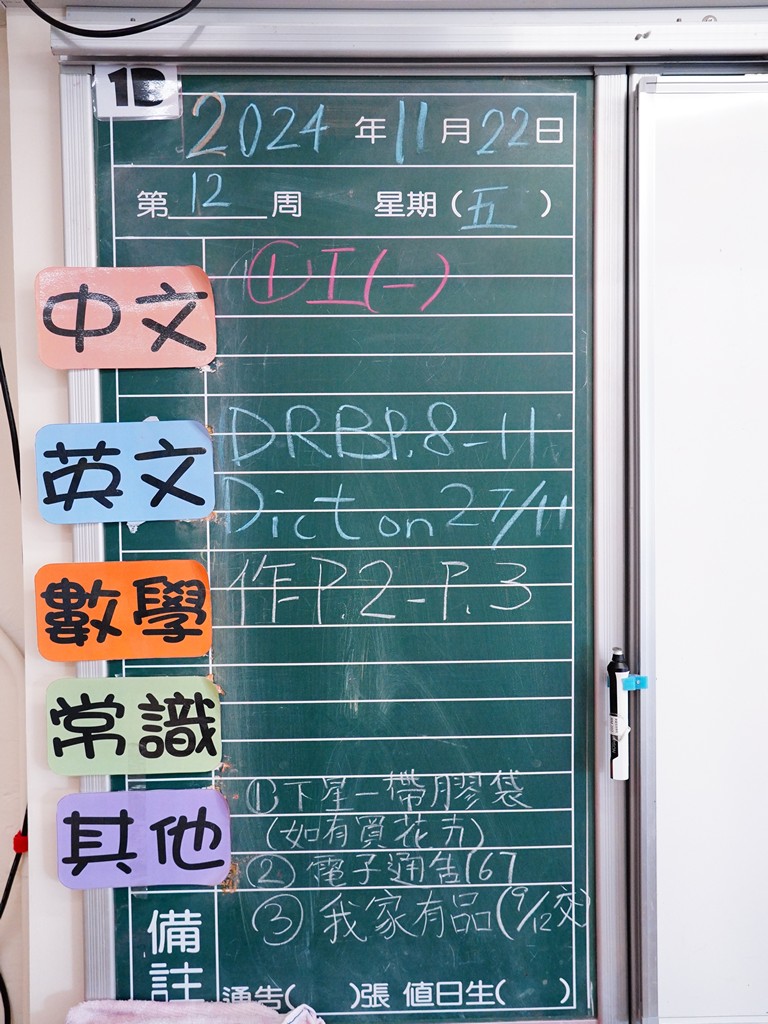 1D
2024年11月22日
第12周 星期(五)
中文
①工(一)
英文
DRBP.8-11
Dict on 27/11
數學
作P.2-P.3
常識
其他
①下星一帶膠袋
(如有買花卉)
②電子通告167
③我家有品(9/12交)
備註
通告( )張 值日生( )